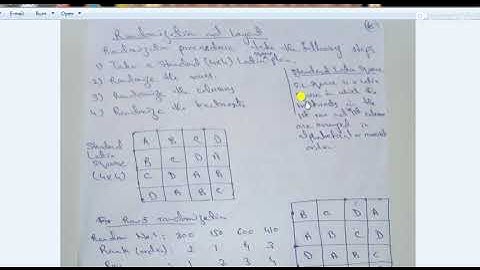 Randomization and Layout
Randomization procedure take the following steps
1) Take a Standard (4x4) Latin square plan.
2) Randomize the rows.
3) Randomize the columns
4) Randomize the treatments
Standard Latin Square
is a Latin
square in which the
treatments in the
1st row and 1st column
are arranged in
alphabetical or numeral
order.
Standard
Latin
Square
(4x4)
A B C D
B C D A
C D A B
D A B C
For Rows randomization
Random No.s: 300 150 600 410
Rank (order) 2 1 4 3
Row 1 2 3 4
B C D A
A B C D
D A B C